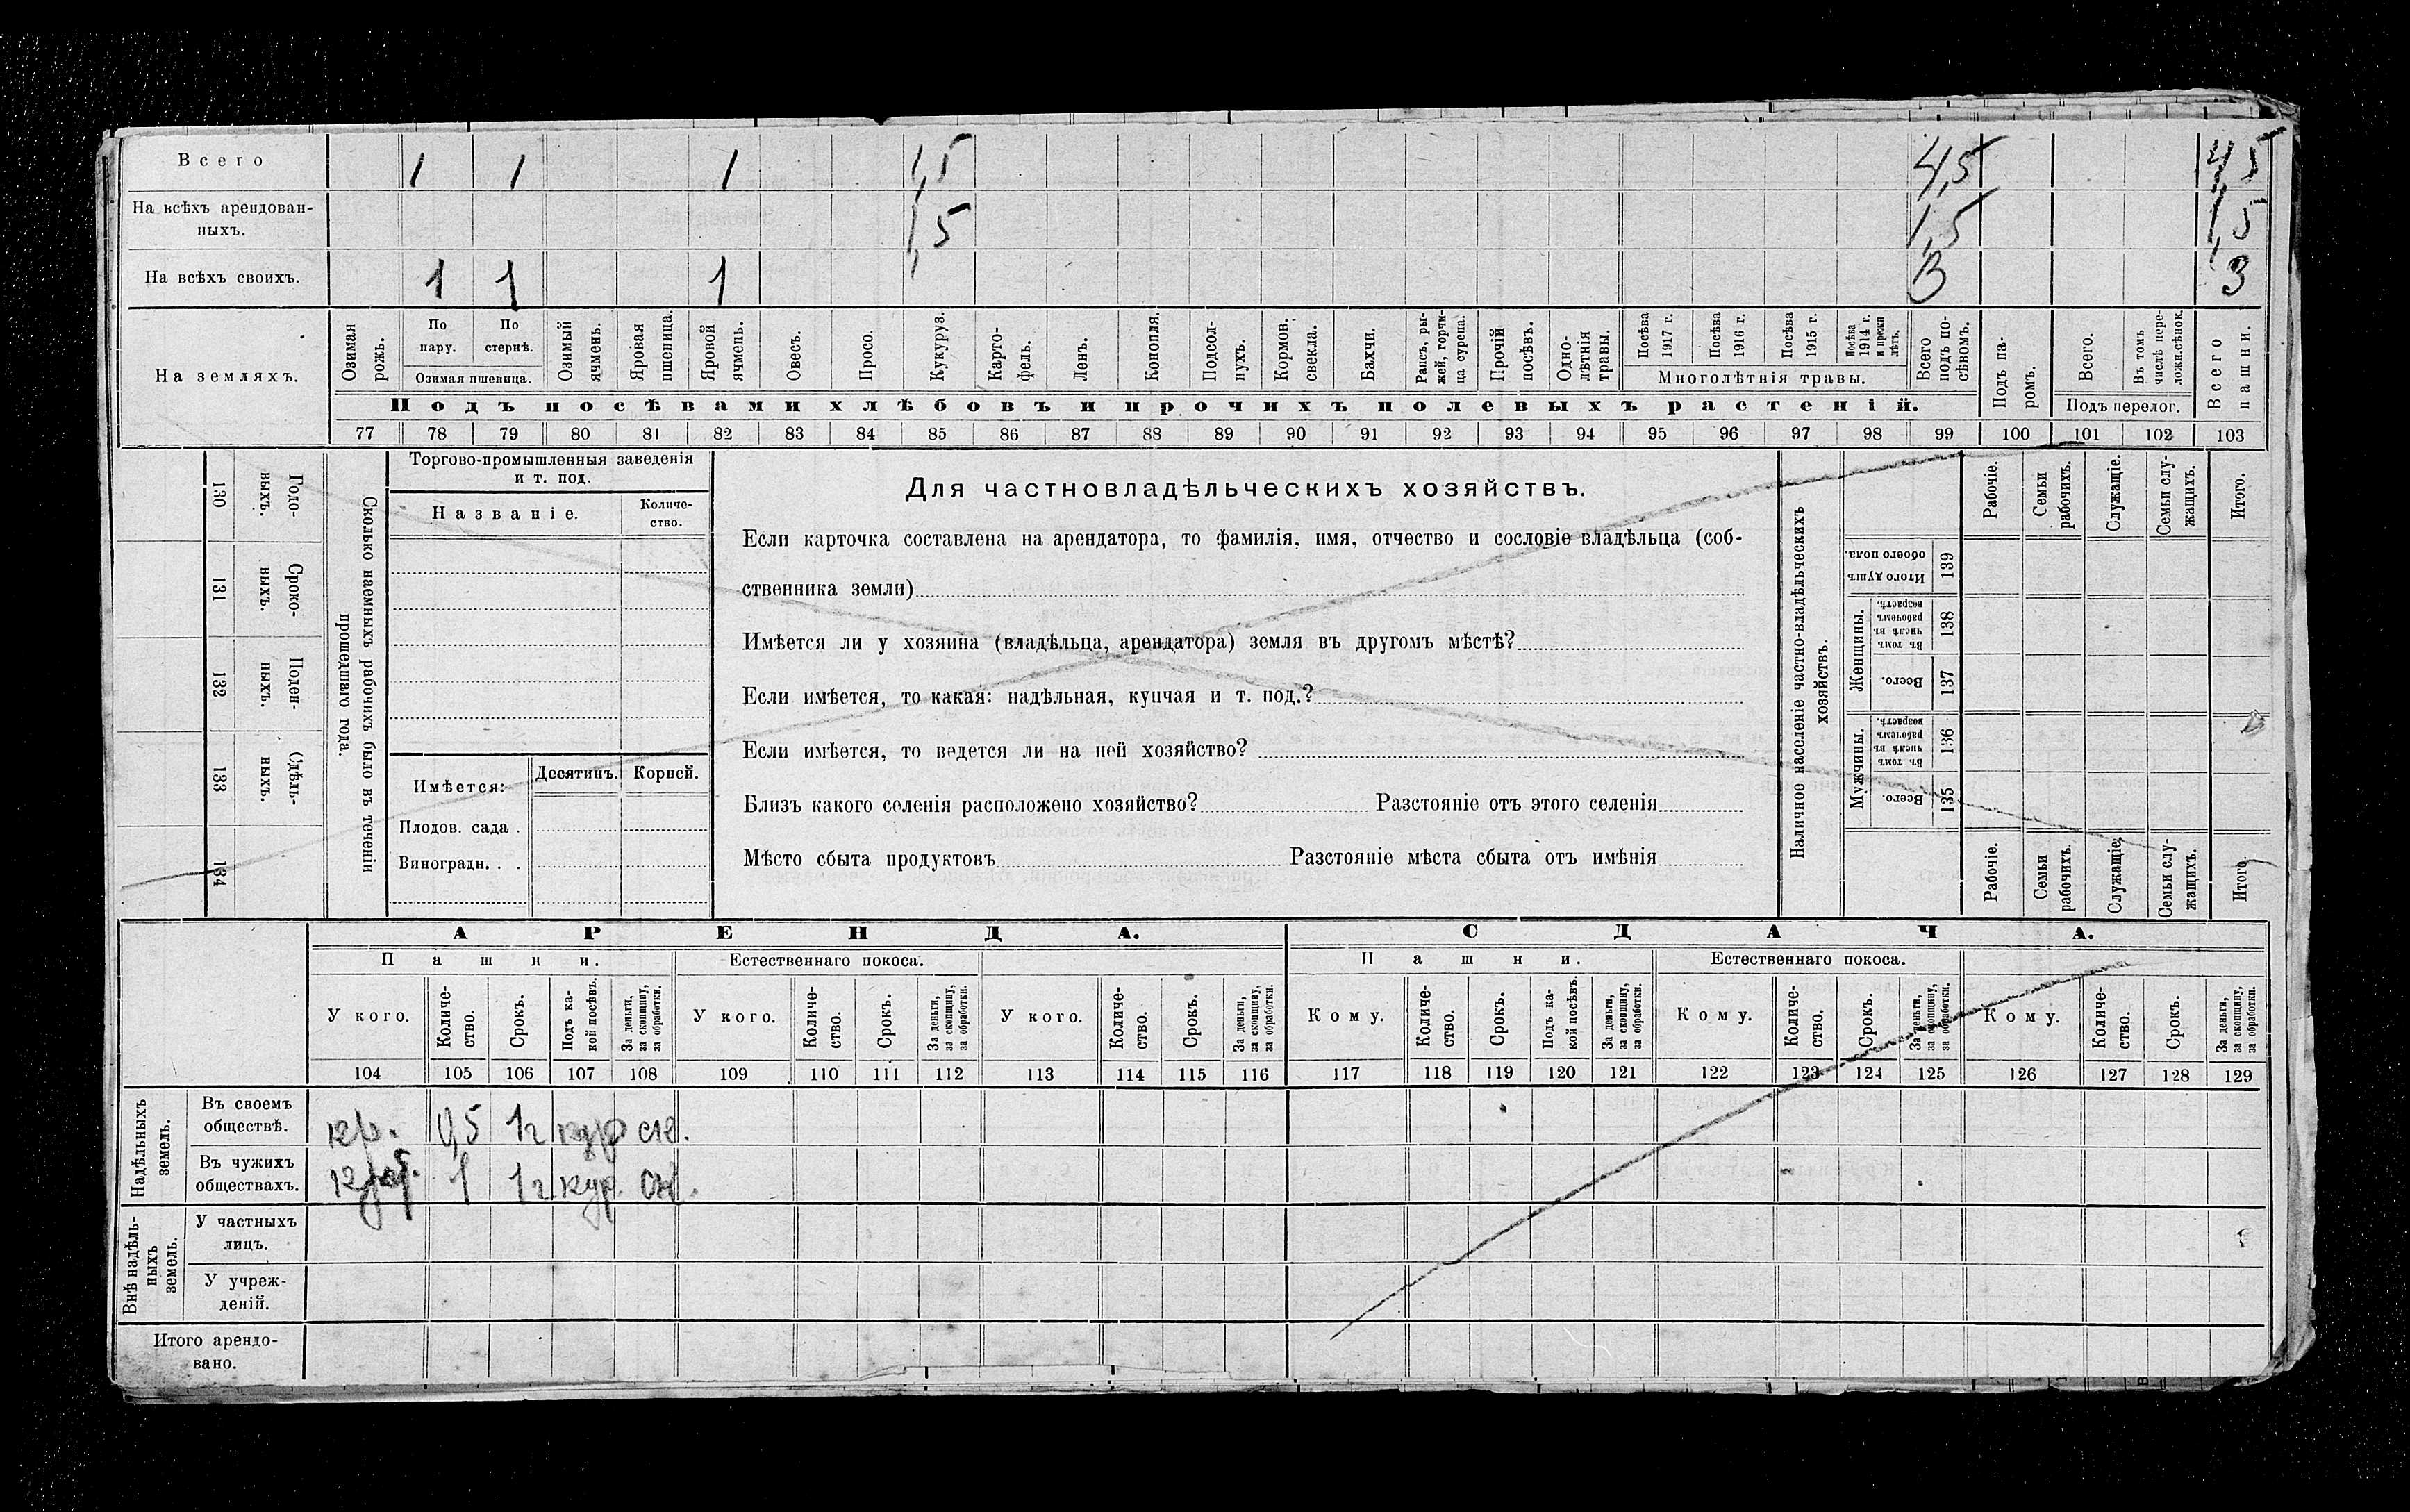 Всего 1 1 1 1,5 4,5 4,5
На всѣхъ арендован-
ныхъ. 1,5 1,5 1,5
На всѣхъ своихъ. 1 1 1 3 3
На земляхъ.
Озимая рожь.
По пару.
По стернѣ.
Озимая пшеница.
Озимый ячмень.
Яровая пшеница.
Яровой ячмень.
Овесъ.
Просо.
Кукуруз.
Карто-
фель.
Ленъ.
Конопля.
Подсол-
нухъ.
Кормов. свекла.
Бахчи.
Рапсъ, ры-
жей, горчи-
ца сурепа.
Прочій посѣвъ.
Одно-
лѣтнія травы.
Посѣва 1917 г.
Посѣва 1916 г.
Посѣва 1915 г.
Посѣва 1914 г. и прежн лѣтъ.
Многолѣтнія травы.
Всего подъ по-
сѣвомъ.
Подъ посѣвами хлѣбовъ и прочихъ полевыхъ растеній.
Подъ па-
ромъ.
Всего.
Въ томъ числѣ пере-
ложн.сѣнок.
Подъ перелог.
Всего пашни.
77 78 79 80 81 82 83 84 85 86 87 88 89 90 91 92 93 94 95 96 97 98 99 100 101 102 103
130 Годо-
выхъ.
131 Сроко-
выхъ.
132 Поден-
ныхъ.
133 Сдѣль-
ныхъ.
134
Сколько наемныхъ рабочихъ было въ теченіи
прошедшаго года.
Торгово-промышленныя заведенія
и т. под.
Названіе.
Количе-
ство.
Имѣется: Десятинъ. Корней.
Плодов. сада .
Виноградн. . .
Для частновладѣльческихъ хозяйствъ.
Если карточка составлена на арендатора, то фамилія, имя, отчество и сословіе владѣльца (соб-
ственника земли)
Имѣется ли у хозяина (владѣльца, арендатора) земля въ другомъ мѣстѣ?
Если имѣется, то какая: надѣльная, купчая и т. под.?
Если имѣется, то ведется ли на ней хозяйство?
Близъ какого селенія расположено хозяйство? Разстояніе отъ этого селенія
Мѣсто сбыта продуктовъ Разстояніе мѣста сбыта отъ имѣнія
Наличное населеніе частно-владѣльческихъ
хозяйствъ.
Рабочіе.
Семьи рабочихъ.
Служащіе.
Семьи слу-
жащихъ.
Итого.
Итого душъ обоего пола. 139
Женщины.
Въ томъ числѣ въ рабочемъ возрастѣ. 138
Всего. 137
Мужчины.
Въ томъ числѣ въ рабочемъ возрастѣ. 136
Всего. 135
Рабочіе.
Семьи рабочихъ.
Служащіе.
Семьи слу-
жащихъ.
Итого.
АРЕНДА. СДАЧА.
Пашни. Естественнаго покоса. Пашни. Естественнаго покоса.
У кого.
Количе-
ство.
Срокъ.
Подъ ка-
кой посѣвъ.
За деньги, за скопщину, за обработки.
У кого.
Количе-
ство.
Срокъ.
За деньги, за скопщину, за обработки.
У кого.
Количе-
ство.
Срокъ.
За деньги, за скопщину, за обработки.
Кому.
Количе-
ство.
Срокъ.
Подъ ка-
кой посѣвъ.
За деньги, за скопщину, за обработки.
Кому.
Количе-
ство.
Срокъ.
За деньги, за скопщину, за обработки.
Кому.
Количе-
ство.
Срокъ.
За деньги, за скопщину, за обработки.
104 105 106 107 108 109 110 111 112 113 114 115 116 117 118 119 120 121 122 123 124 125 126 127 128 129
Надѣльныхъ
земель.
Въ своемъ
обществѣ. кр. 0,5 1г кур ск.
Въ чужихъ
обществахъ. 1 1г кур. ск.
Внѣ надѣль-
ныхъ
земель.
У частныхъ
лицъ.
У учреж-
деній.
Итого арендо-
вано.